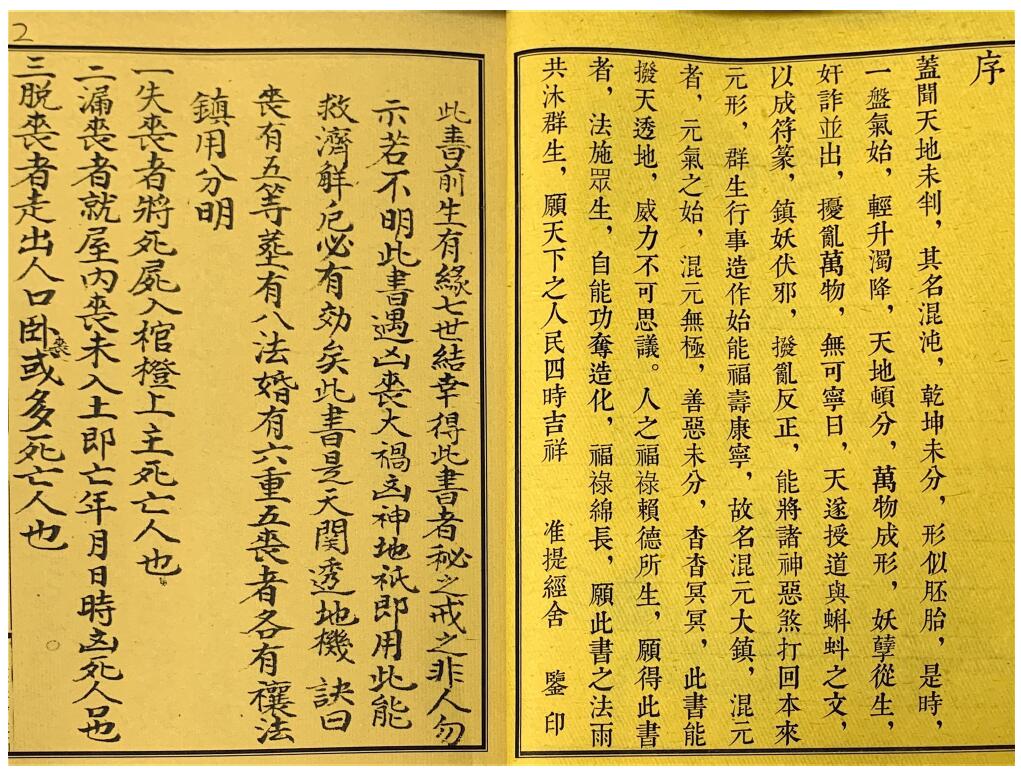 序
蓋聞天地未判，其名混沌，乾坤未分，形似胚胎，是時，
一盤氣始，輕升濁降，天地頓分，萬物成形，妖孽從生，
奸詐並出，擾亂萬物，無可寧日，天遂授道與蝌蚪之文，
以成符篆，鎮妖伏邪，撥亂反正，能將諸神惡煞打回本來
元形，群生行事造作始能福壽康寧，故名混元大鎮，混元
者，元氣之始，混元無極，善惡未分，杳杳冥冥，此書能
撥天透地，威力不可思議。人之福祿賴德所生，願得此書
者，法施眾生，自能功奪造化，福祿綿長，願此書之法雨
共沐群生，願天下之人民四時吉祥　准提經舍　鑒印
2
此書前生有緣七世結幸得此書者秘之戒之非人勿
示若不明此書遇凶喪大禍凶神地祇即用此能
救濟解厄必有効矣此書是天関透地機　訣曰
喪有五等墓有八法婚有六重五喪者各有禳法
鎮用分明
一失喪者將死屍入棺橙上主死亡人也
二漏喪者就屋內喪未入土即亡年月日時凶死人口也
三脫喪者走出人口臥喪或多死亡人也